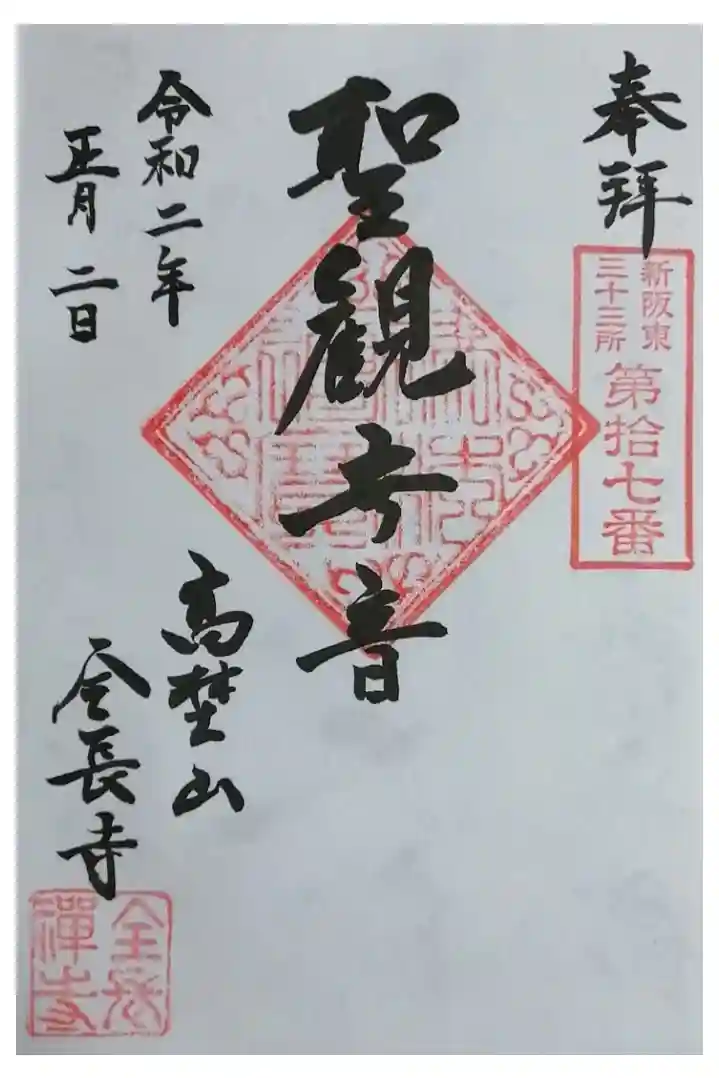 奉拝
新阪東
三十三所
第拾七番
聖観世音
令和二年
正月二日
高埜山
全長寺
全長
禪寺